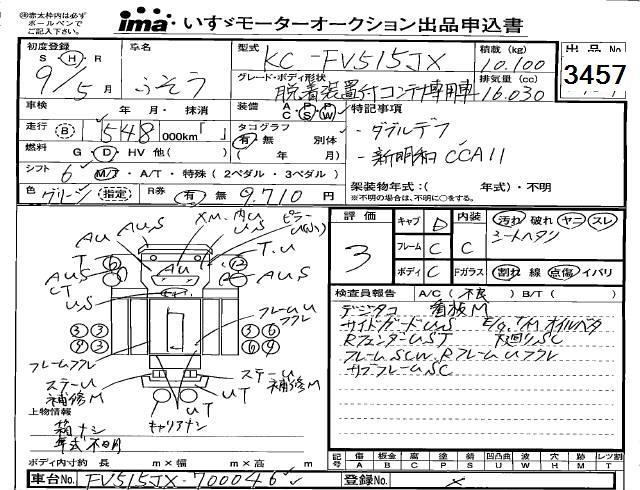 ㊟赤太枠内は必ず
ボールペンで
ご記入下さい。
ima いすゞモーターオークション出品申込書
初度登録 S・H・R 9年 5月
車名 ふそう
型式 KC-FV515JX
積載(kg) 10.100
出品No 3457
グレード・ボディ形状 脱着装置付コンテナ専用車
排気量(cc) 16.030
車検 年 月・抹消
装備 A・P・P C S W
特記事項
走行 B 548 000km「 」
タコグラフ 有・無 別体 ( 年 月)
・ダブルデフ
燃料 G・D・HV 他( )
・新明和 CCA11
シフト 6 M/T・A/T・特殊(2ペダル・3ペダル)
架装物年式:( 年式)・不明
※不明の場合は、不明に○をする。
色 グリーン 指定 R券 有 無 9.710円
評価 3
キャブ D 内装 C 汚れ 破れ ヤニ スレ
シートヘタリ
フレーム C
ボディ C Fガラス 割れ 線 点傷 イバリ
検査員報告 A/C(不良) B/T( )
デジタコ 看板M
サイドガードUS E/g.T/M オイルベタ
RフェンターUST 下廻りSC
フレームSCW RフレームUフクレ
サブフレームSC
AU AUS XM.内U US ピラーU(小)
T T.U
AUS CT US AU AUS
6 12
フレームU フクレ
3 3 3 3
6 4 9 3
フレームフクレ
ステーU 補修M
ステーU 補修M
UT UT
キャリアナシ
上物情報
箱ナシ
年式不明
ボディ内寸約 長 m×幅 m×高 m
記号 傷 板金 腐 塗 錆 凹凸曲 波 穴 跡 レツ割
A B C P S U W H M T
車台No. FV515JX-700046
登録No. ×